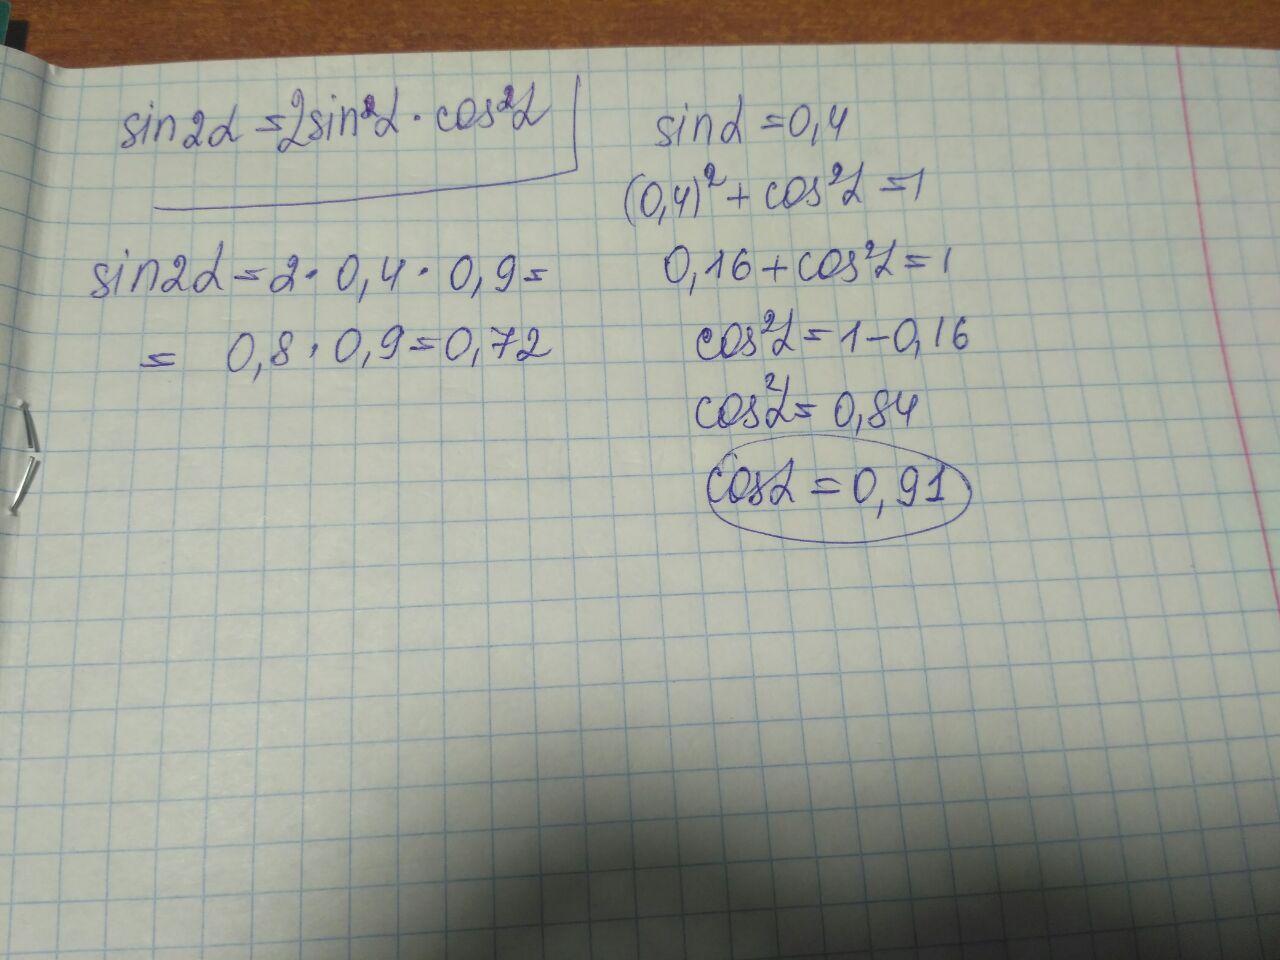 sin2α = 2sin²α · cos²α
sin2α = 2 · 0,4 · 0,9 =
= 0,8 · 0,9 = 0,72
sinα = 0,4
(0,4)² + cos²α = 1
0,16 + cos²α = 1
cos²α = 1 - 0,16
cos²α = 0,84
cosα = 0,91